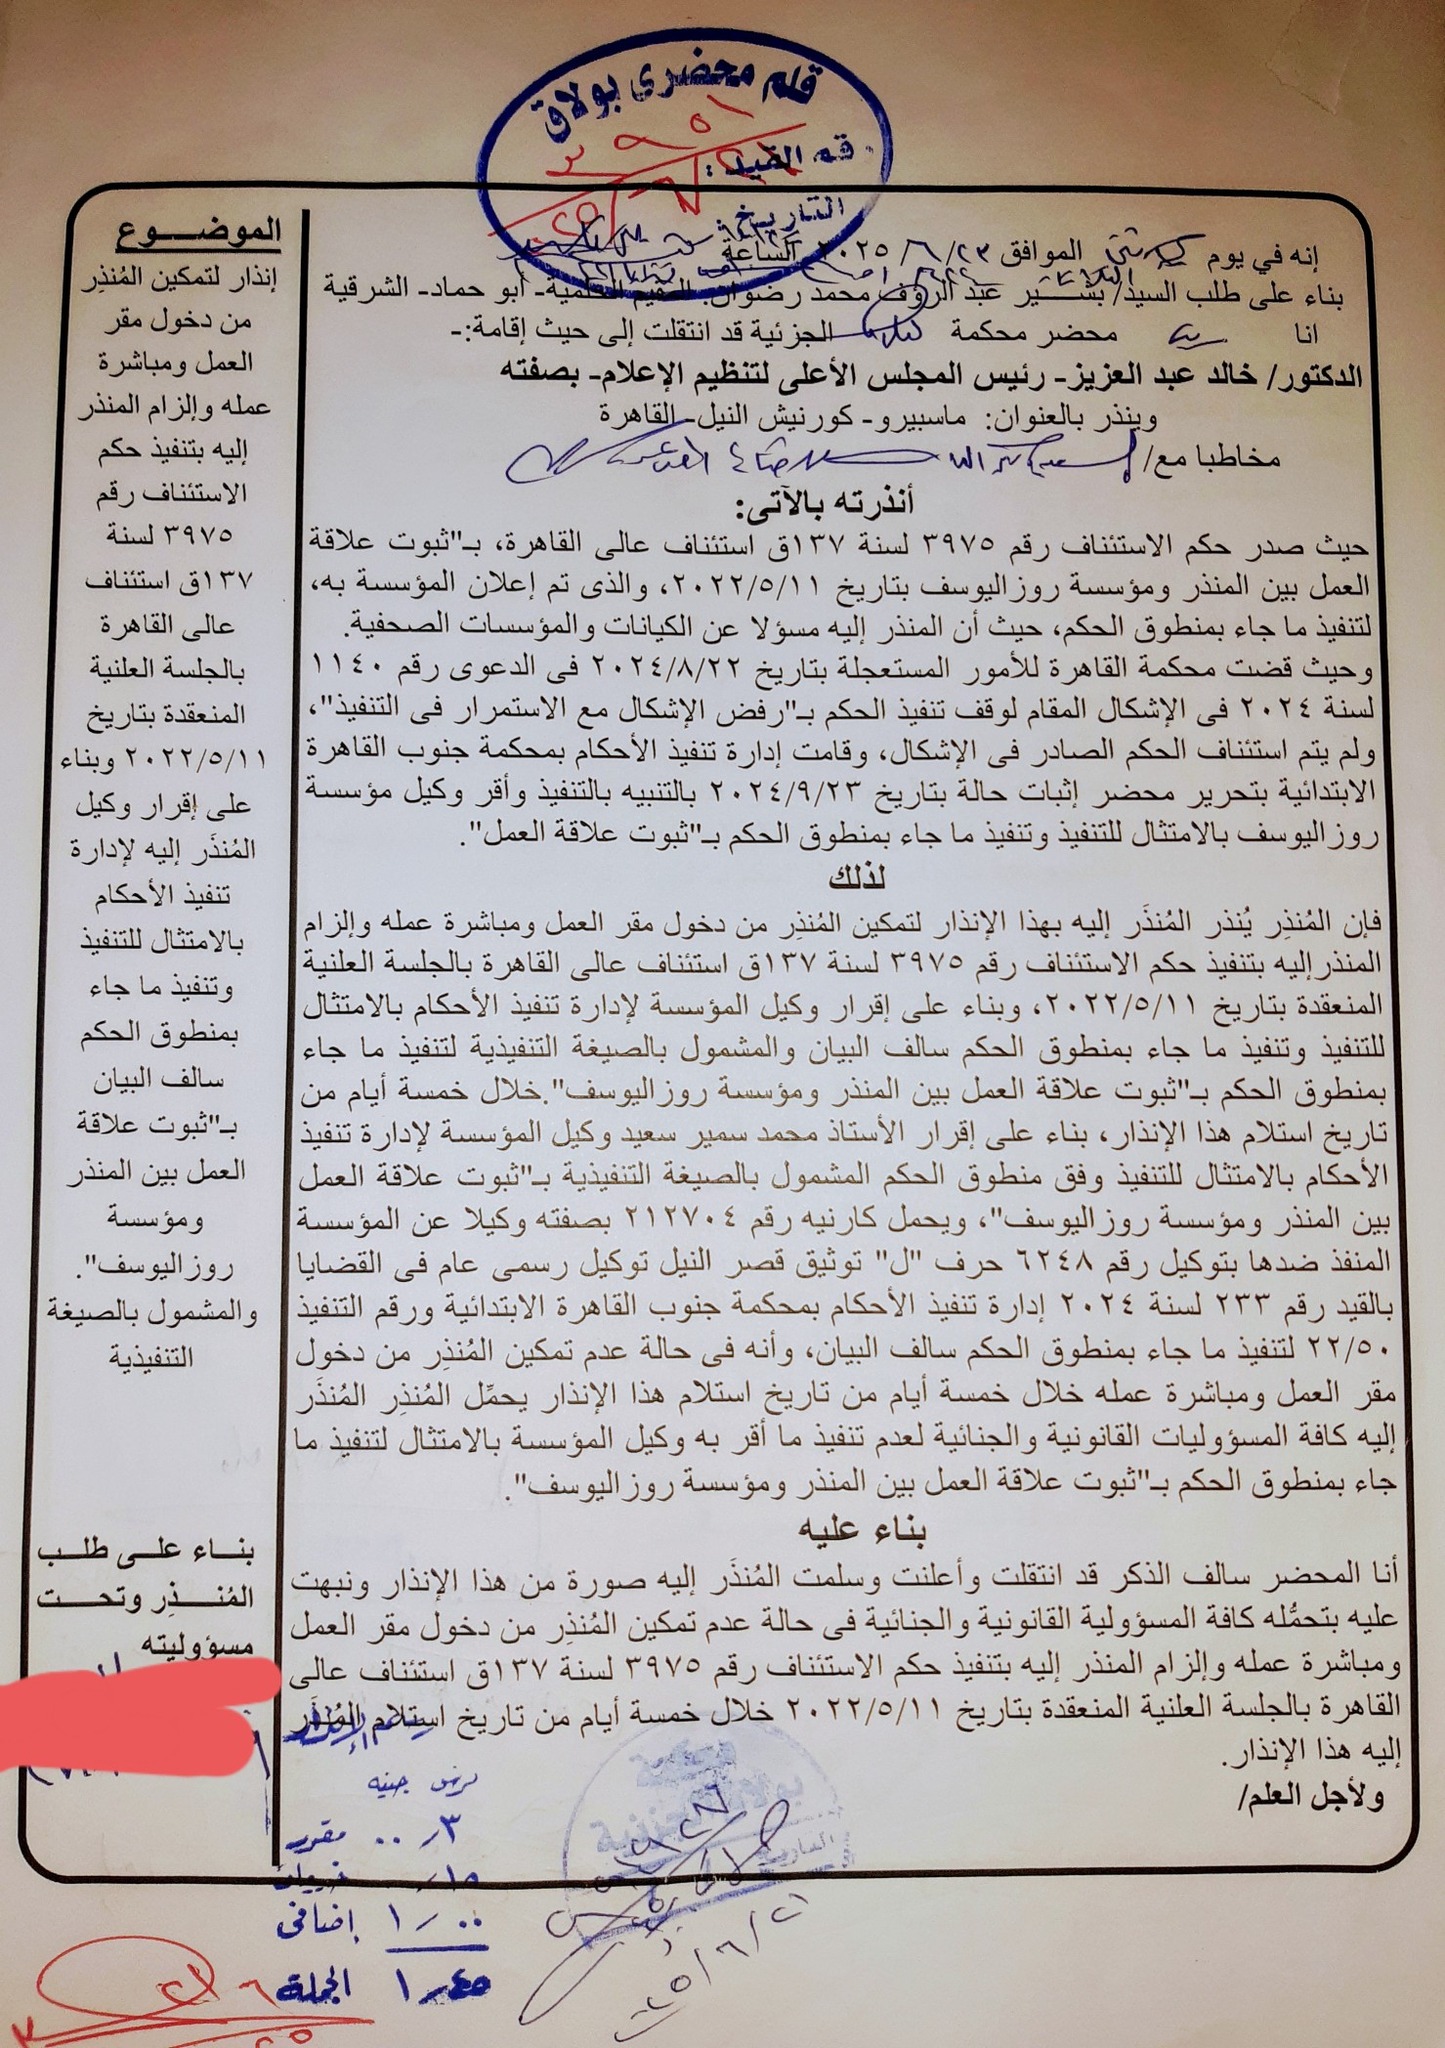 قلم محضرى بولاق
التاريخ:
إنه في يوم الموافق ٢٠٢٥/٦/٢٣ الساعة
بناء على طلب السيد/ بشير عبد الرؤف محمد رضوان. المقيم الحلمية- أبو حماد- الشرقية
انا محضر محكمة الجزئية قد انتقلت إلى حيث إقامة:-
الدكتور/ خالد عبد العزيز- رئيس المجلس الأعلى لتنظيم الإعلام- بصفته
وينذر بالعنوان: ماسبيرو- كورنيش النيل- القاهرة
مخاطبا مع/
أنذرته بالآتى:
حيث صدر حكم الاستئناف رقم ٣٩٧٥ لسنة ١٣٧ق استئناف عالى القاهرة، بـ"ثبوت علاقة
العمل بين المنذر ومؤسسة روزاليوسف بتاريخ ٢٠٢٢/٥/١١، والذى تم إعلان المؤسسة به،
لتنفيذ ما جاء بمنطوق الحكم، حيث أن المنذر إليه مسؤلا عن الكيانات والمؤسسات الصحفية.
وحيث قضت محكمة القاهرة للأمور المستعجلة بتاريخ ٢٠٢٤/٨/٢٢ فى الدعوى رقم ١١٤٠
لسنة ٢٠٢٤ فى الإشكال المقام لوقف تنفيذ الحكم بـ"رفض الإشكال مع الاستمرار فى التنفيذ"،
ولم يتم استئناف الحكم الصادر فى الإشكال، وقامت إدارة تنفيذ الأحكام بمحكمة جنوب القاهرة
الابتدائية بتحرير محضر إثبات حالة بتاريخ ٢٠٢٤/٩/٢٣ بالتنبيه بالتنفيذ وأقر وكيل مؤسسة
روزاليوسف بالامتثال للتنفيذ وتنفيذ ما جاء بمنطوق الحكم بـ"ثبوت علاقة العمل".
لذلك
فإن المُنذِر يُنذر المُنذَر إليه بهذا الإنذار لتمكين المُنذِر من دخول مقر العمل ومباشرة عمله وإلزام
المنذرإليه بتنفيذ حكم الاستئناف رقم ٣٩٧٥ لسنة ١٣٧ق استئناف عالى القاهرة بالجلسة العلنية
المنعقدة بتاريخ ٢٠٢٢/٥/١١، وبناء على إقرار وكيل المؤسسة لإدارة تنفيذ الأحكام بالامتثال
للتنفيذ وتنفيذ ما جاء بمنطوق الحكم سالف البيان والمشمول بالصيغة التنفيذية لتنفيذ ما جاء
بمنطوق الحكم بـ"ثبوت علاقة العمل بين المنذر ومؤسسة روزاليوسف".خلال خمسة أيام من
تاريخ استلام هذا الإنذار، بناء على إقرار الأستاذ محمد سمير سعيد وكيل المؤسسة لإدارة تنفيذ
الأحكام بالامتثال للتنفيذ وفق منطوق الحكم المشمول بالصيغة التنفيذية بـ"ثبوت علاقة العمل
بين المنذر ومؤسسة روزاليوسف"، ويحمل كارنيه رقم ٢١٢٧٠٤ بصفته وكيلا عن المؤسسة
المنفذ ضدها بتوكيل رقم ٦٢٤٨ حرف "ل" توثيق قصر النيل توكيل رسمى عام فى القضايا
بالقيد رقم ٢٣٣ لسنة ٢٠٢٤ إدارة تنفيذ الأحكام بمحكمة جنوب القاهرة الابتدائية ورقم التنفيذ
٢٢/٥٠ لتنفيذ ما جاء بمنطوق الحكم سالف البيان، وأنه فى حالة عدم تمكين المُنذِر من دخول
مقر العمل ومباشرة عمله خلال خمسة أيام من تاريخ استلام هذا الإنذار يحمِّل المُنذِر المُنذَر
إليه كافة المسؤوليات القانونية والجنائية لعدم تنفيذ ما أقر به وكيل المؤسسة بالامتثال لتنفيذ ما
جاء بمنطوق الحكم بـ"ثبوت علاقة العمل بين المنذر ومؤسسة روزاليوسف".
بناء عليه
أنا المحضر سالف الذكر قد انتقلت وأعلنت وسلمت المُنذَر إليه صورة من هذا الإنذار ونبهت
عليه بتحمُّله كافة المسؤولية القانونية والجنائية فى حالة عدم تمكين المُنذِر من دخول مقر العمل
ومباشرة عمله وإلزام المنذر إليه بتنفيذ حكم الاستئناف رقم ٣٩٧٥ لسنة ١٣٧ق استئناف عالى
القاهرة بالجلسة العلنية المنعقدة بتاريخ ٢٠٢٢/٥/١١ خلال خمسة أيام من تاريخ استلام المُنذَر
إليه هذا الإنذار.
ولأجل العلم/
الموضـــوع
إنذار لتمكين المُنذِر
من دخول مقر
العمل ومباشرة
عمله وإلزام المنذر
إليه بتنفيذ حكم
الاستئناف رقم
٣٩٧٥ لسنة
١٣٧ق استئناف
عالى القاهرة
بالجلسة العلنية
المنعقدة بتاريخ
٢٠٢٢/٥/١١ وبناء
على إقرار وكيل
المُنذَر إليه لإدارة
تنفيذ الأحكام
بالامتثال للتنفيذ
وتنفيذ ما جاء
بمنطوق الحكم
سالف البيان
بـ"ثبوت علاقة
العمل بين المنذر
ومؤسسة
روزاليوسف".
والمشمول بالصيغة
التنفيذية
بناء على طلب
المُنذِر وتحت
مسؤوليته
جنيه
٣/٠٠ مقرر
١/٠٠ إضافى
الجملة